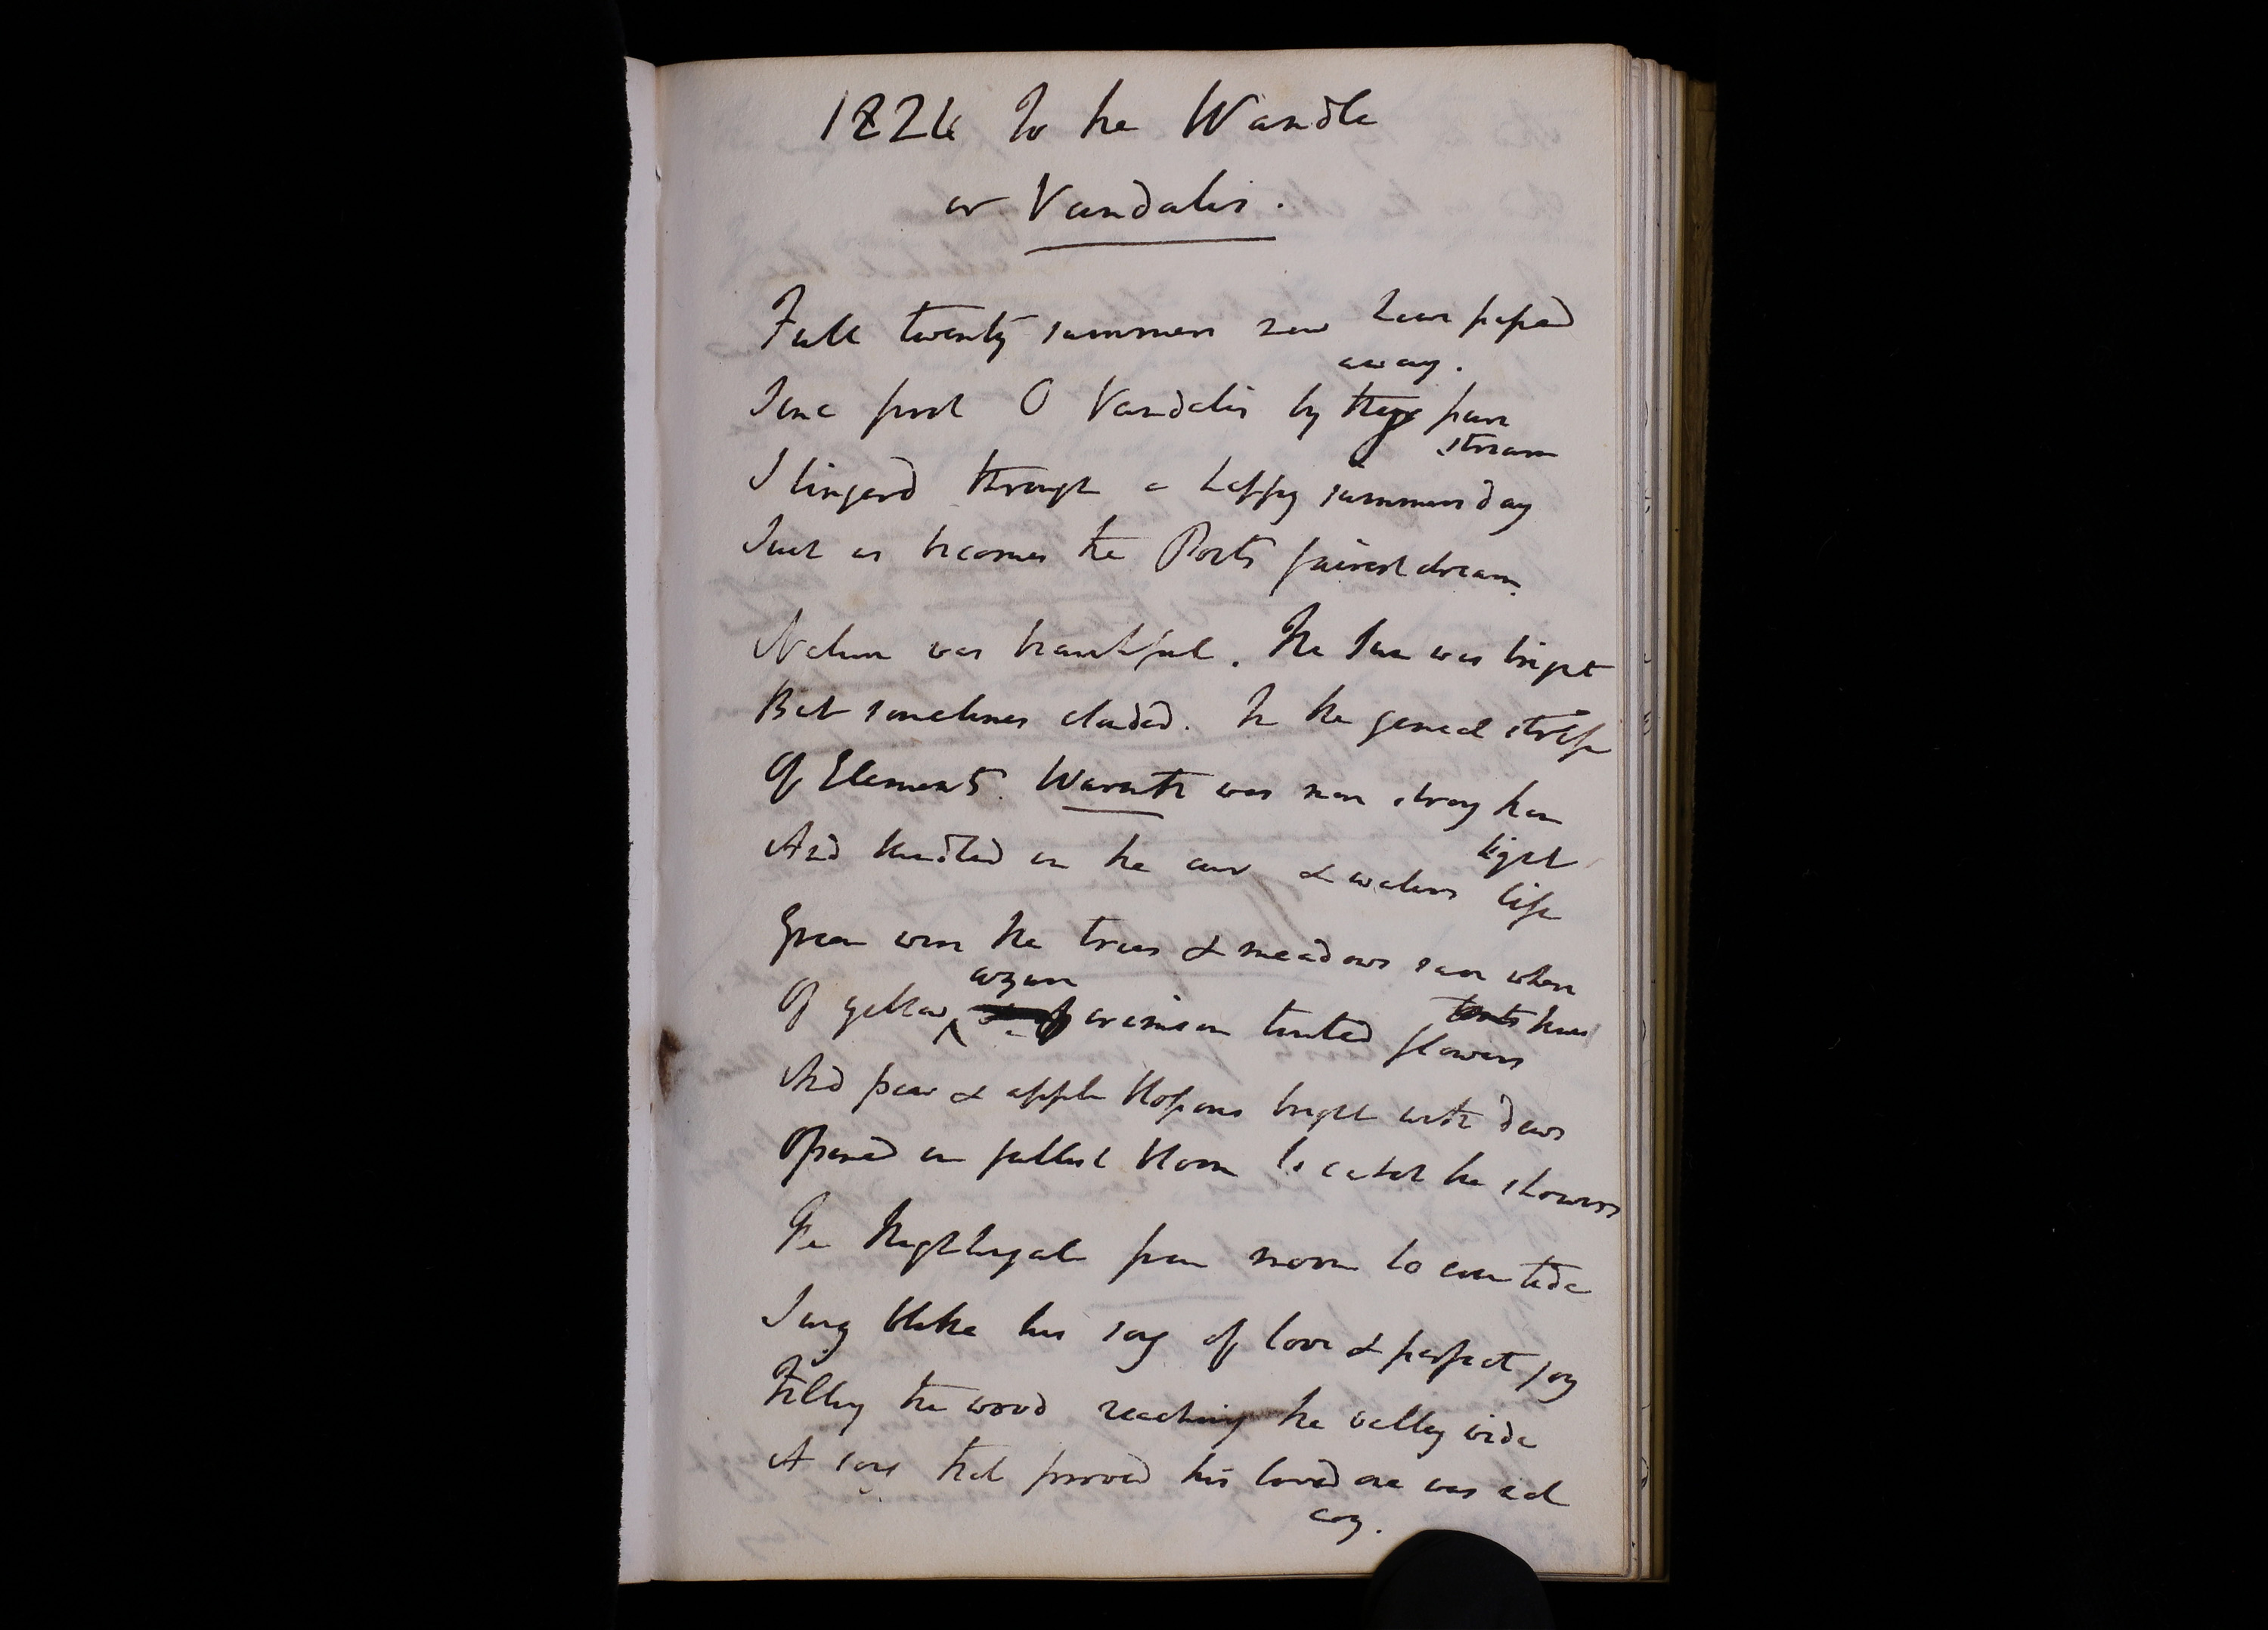 1824 To the Wandle
or Vandalis.
Full twenty summers now have passed
away.
Since first O Vandalis by thy pure
stream
I lingerd through a happy summers day
Such as becomes the Poets fairest dream.
Nature was beautiful. The Sun was bright
But sometimes clouded. In the general strife
Of Elements. Warmth was more strong than
light
And kindled in the air & waters life
Green were the trees & meadows save where
azure tints hues
Of yellow crimson tinted flowers
And pear & apple blossoms bright with dews
Opened in fullest bloom to catch the showers
The Nightingale from morn to even tide
Sung blithe his song of love & perfect joy
Filling the wood reaching the valley wide
A song that proved his loved one was not
coy.